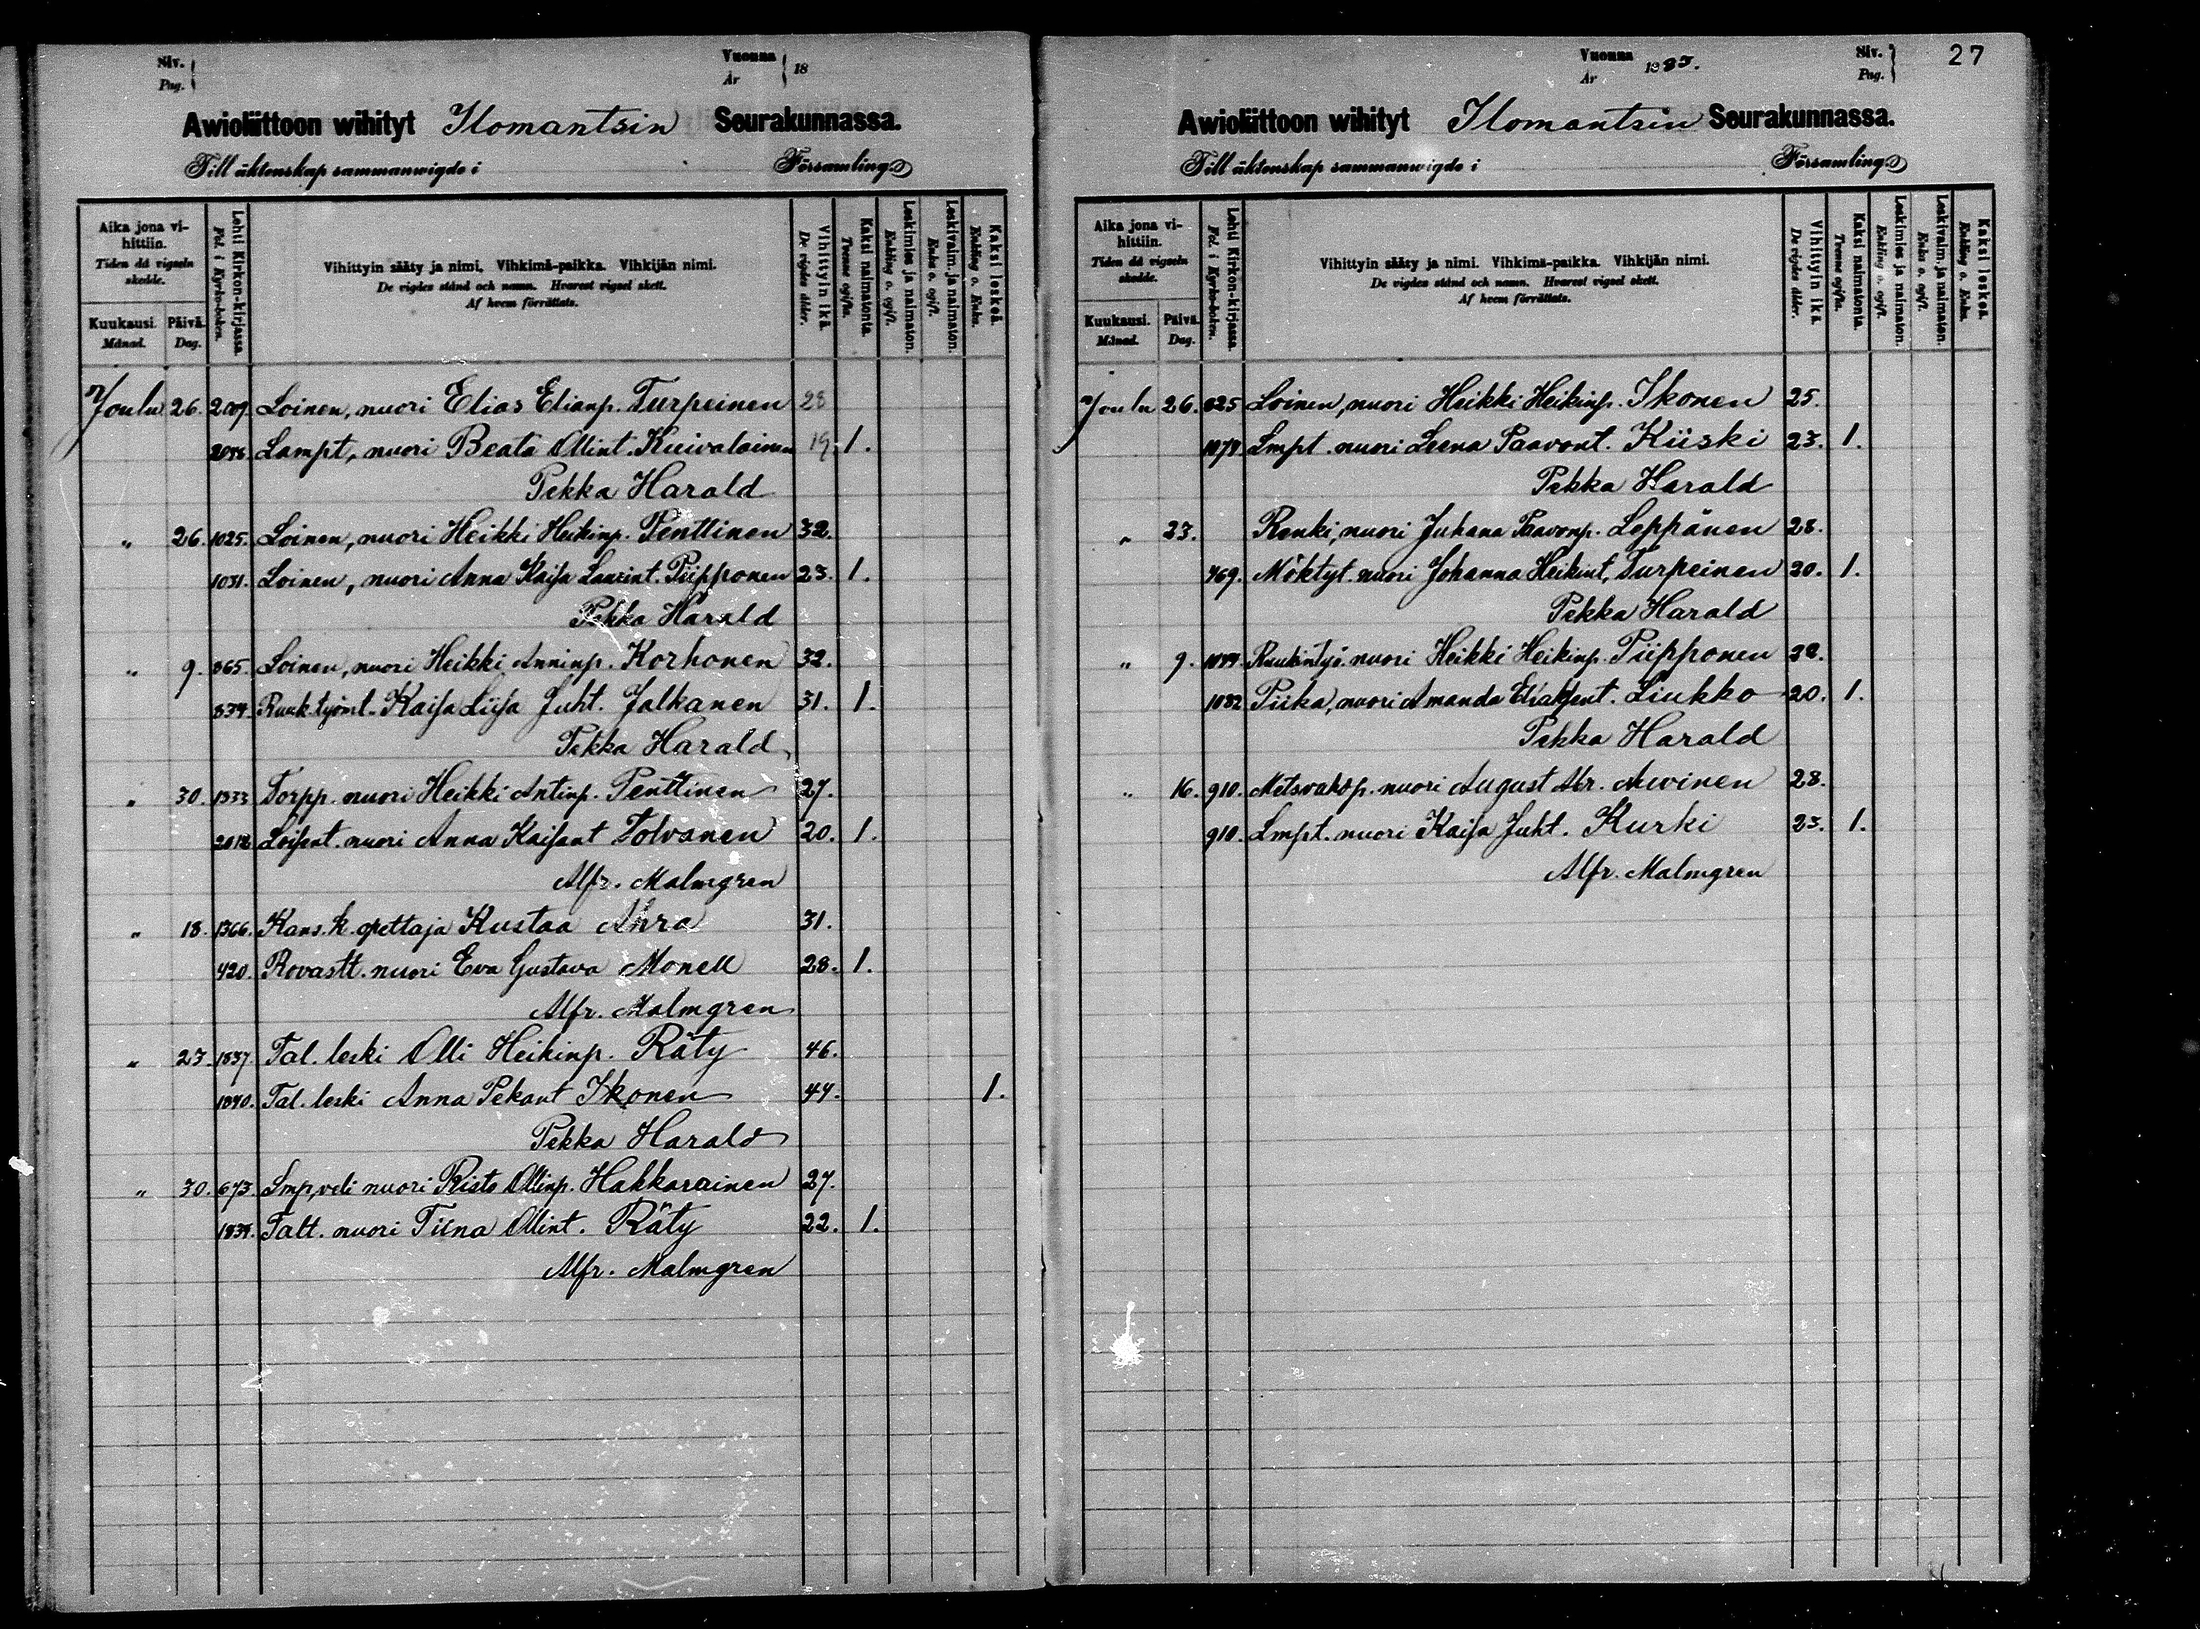 Siv.
Pag.
Vuonna
År
18
Awioliittoon wihityt Ilomantsin Seurakunnassa.
Till äktenskap sammanwigde i Församling.
Aika jona vihittiin.
Tiden då vigseln skedde.
Kuukausi.
Månad.
Päivä.
Dag.
Lehti Kirkon-kirjassa.
Fol. i Kyrko-boken.
Vihittyin sääty ja nimi. Vihkimä-paikka. Vihkijän nimi.
De vigdes stånd och namn. Hvarest vigsel skett.
Af hvem förrättats.
Vihittyin ikä.
De vigdes ålder.
Kaksi naimatonta.
Tvenne ogifta.
Leskimies ja naimaton.
Enkling o. ogift.
Leskivaim. ja naimaton.
Enka o. ogift.
Kaksi leskeä.
Enkling o. Enka.
Joulu 26. Loinen, nuori Elias Elianp. Turpeinen 23
Lampt, nuori Beata Ollint. Kuivalainen 19. 1.
Pekka Harald
" 26. 1025. Loinen, nuori Heikki Heikinp. Penttinen 32.
1031. Loinen, nuori Anna Kaisa Laurint. Piipponen 23. 1.
Pekka Harald
" 9. 865. Loinen, nuori Heikki Anninp. Korhonen 32.
834. Ruuk. työml. Kaisa Liisa Juht. Jalkanen 31. 1.
Pekka Harald
" 30. 1333 Torpp. nuori Heikki Antinp. Penttinen 27.
Loisent. nuori Anna Kaisant Tolvanen 20. 1.
Alfr. Malmgren
" 18. 1366. Kans. k. opettaja Kustaa Ahra 31.
420. Rovastt. nuori Eva Gustava Monell 28. 1.
Alfr. Malmgren
" 23. 1837. Tal. leski Olli Heikinp. Räty 46.
1840. Tal. leski Anna Pekant Ikonen 44. 1.
Pekka Harald
" 30. 673. Lmp, veli nuori Risto Ollinp. Hakkarainen 27.
1839. Talt. nuori Tiina Ollint. Räty 22. 1.
Alfr. Malmgren
Vuonna
År
1885.
Siv.
Pag.
27
Awioliittoon wihityt Ilomantsin Seurakunnassa.
Till äktenskap sammanwigde i Församling.
Aika jona vihittiin.
Tiden då vigseln skedde.
Kuukausi.
Månad.
Päivä.
Dag.
Lehti Kirkon-kirjassa.
Fol. i Kyrko-boken.
Vihittyin sääty ja nimi. Vihkimä-paikka. Vihkijän nimi.
De vigdes stånd och namn. Hvarest vigsel skett.
Af hvem förrättats.
Vihittyin ikä.
De vigdes ålder.
Kaksi naimatonta.
Tvenne ogifta.
Leskimies ja naimaton.
Enkling o. ogift.
Leskivaim. ja naimaton.
Enka o. ogift.
Kaksi leskeä.
Enkling o. Enka.
Joulu 26. 825 Loinen, nuori Heikki Heikinp. Ikonen 25.
Lmpt. nuori Leena Paavont. Kiiski 23. 1.
Pekka Harald
" 23. Renki, nuori Juhana Paavonp. Leppänen 28.
769. Möktyt. nuori Johanna Heikint, Turpeinen 20. 1.
Pekka Harald
" 9. Ruukintyö. nuori Heikki Heikinp. Piipponen 22.
1082 Piika, nuori Amanda Liukko 20. 1.
Pekka Harald
" 16. 910. nuori August Abr. 28.
910. Lmpt. nuori Kaisa Juht. Kurki 23. 1.
Alfr. Malmgren